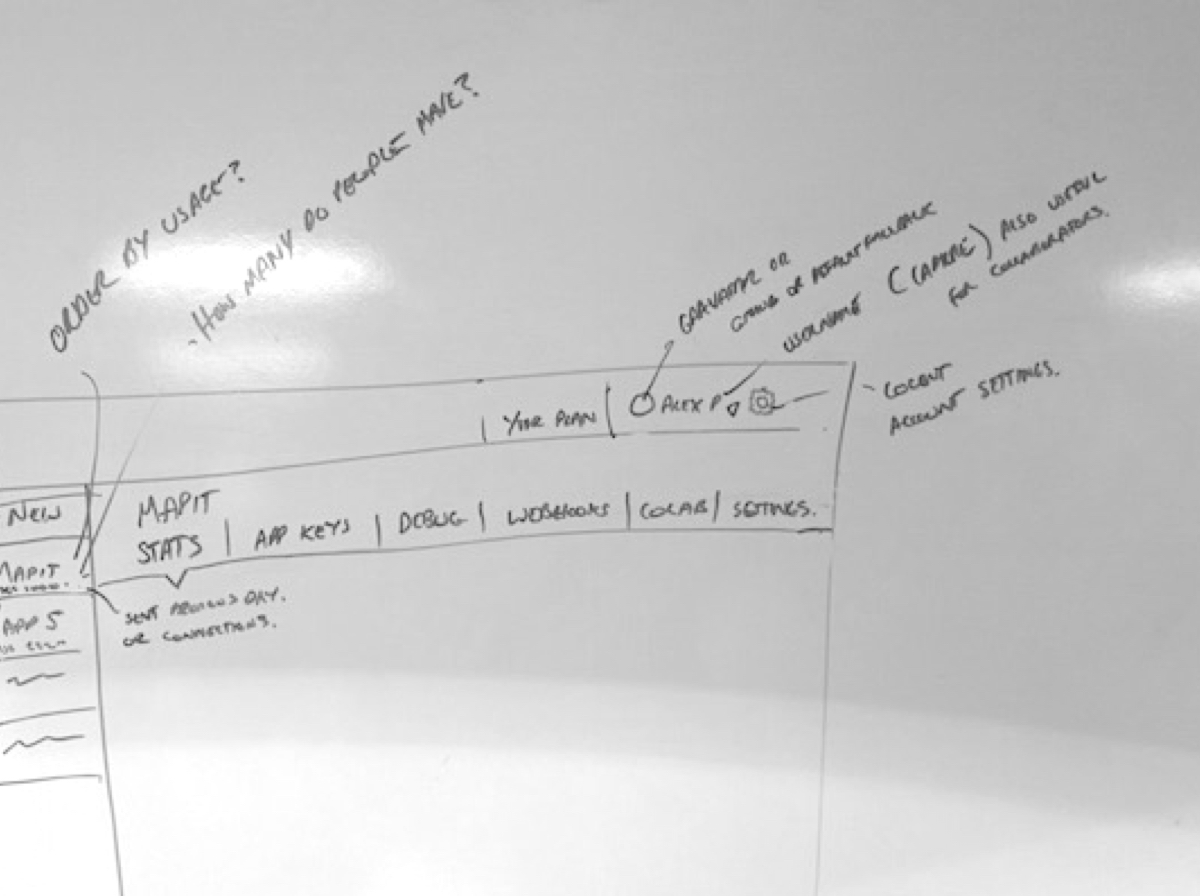 ORDER BY USAGE?
HOW MANY DO PEOPLE HAVE?
GRAVATAR OR
OR DEFAULT FALLBACK
USERNAME ( ) ALSO USEFUL
FOR COLLABORATORS.
LOGOUT
ACCOUNT SETTINGS.
YOUR PLAN | ALEX P
NEW
MAPIT
STATS | APP KEYS | DEBUG | WEBHOOKS | COLAB | SETTINGS.
MAPIT
SENT PREVIOUS DAY.
OR CONNECTIONS.
APP 5